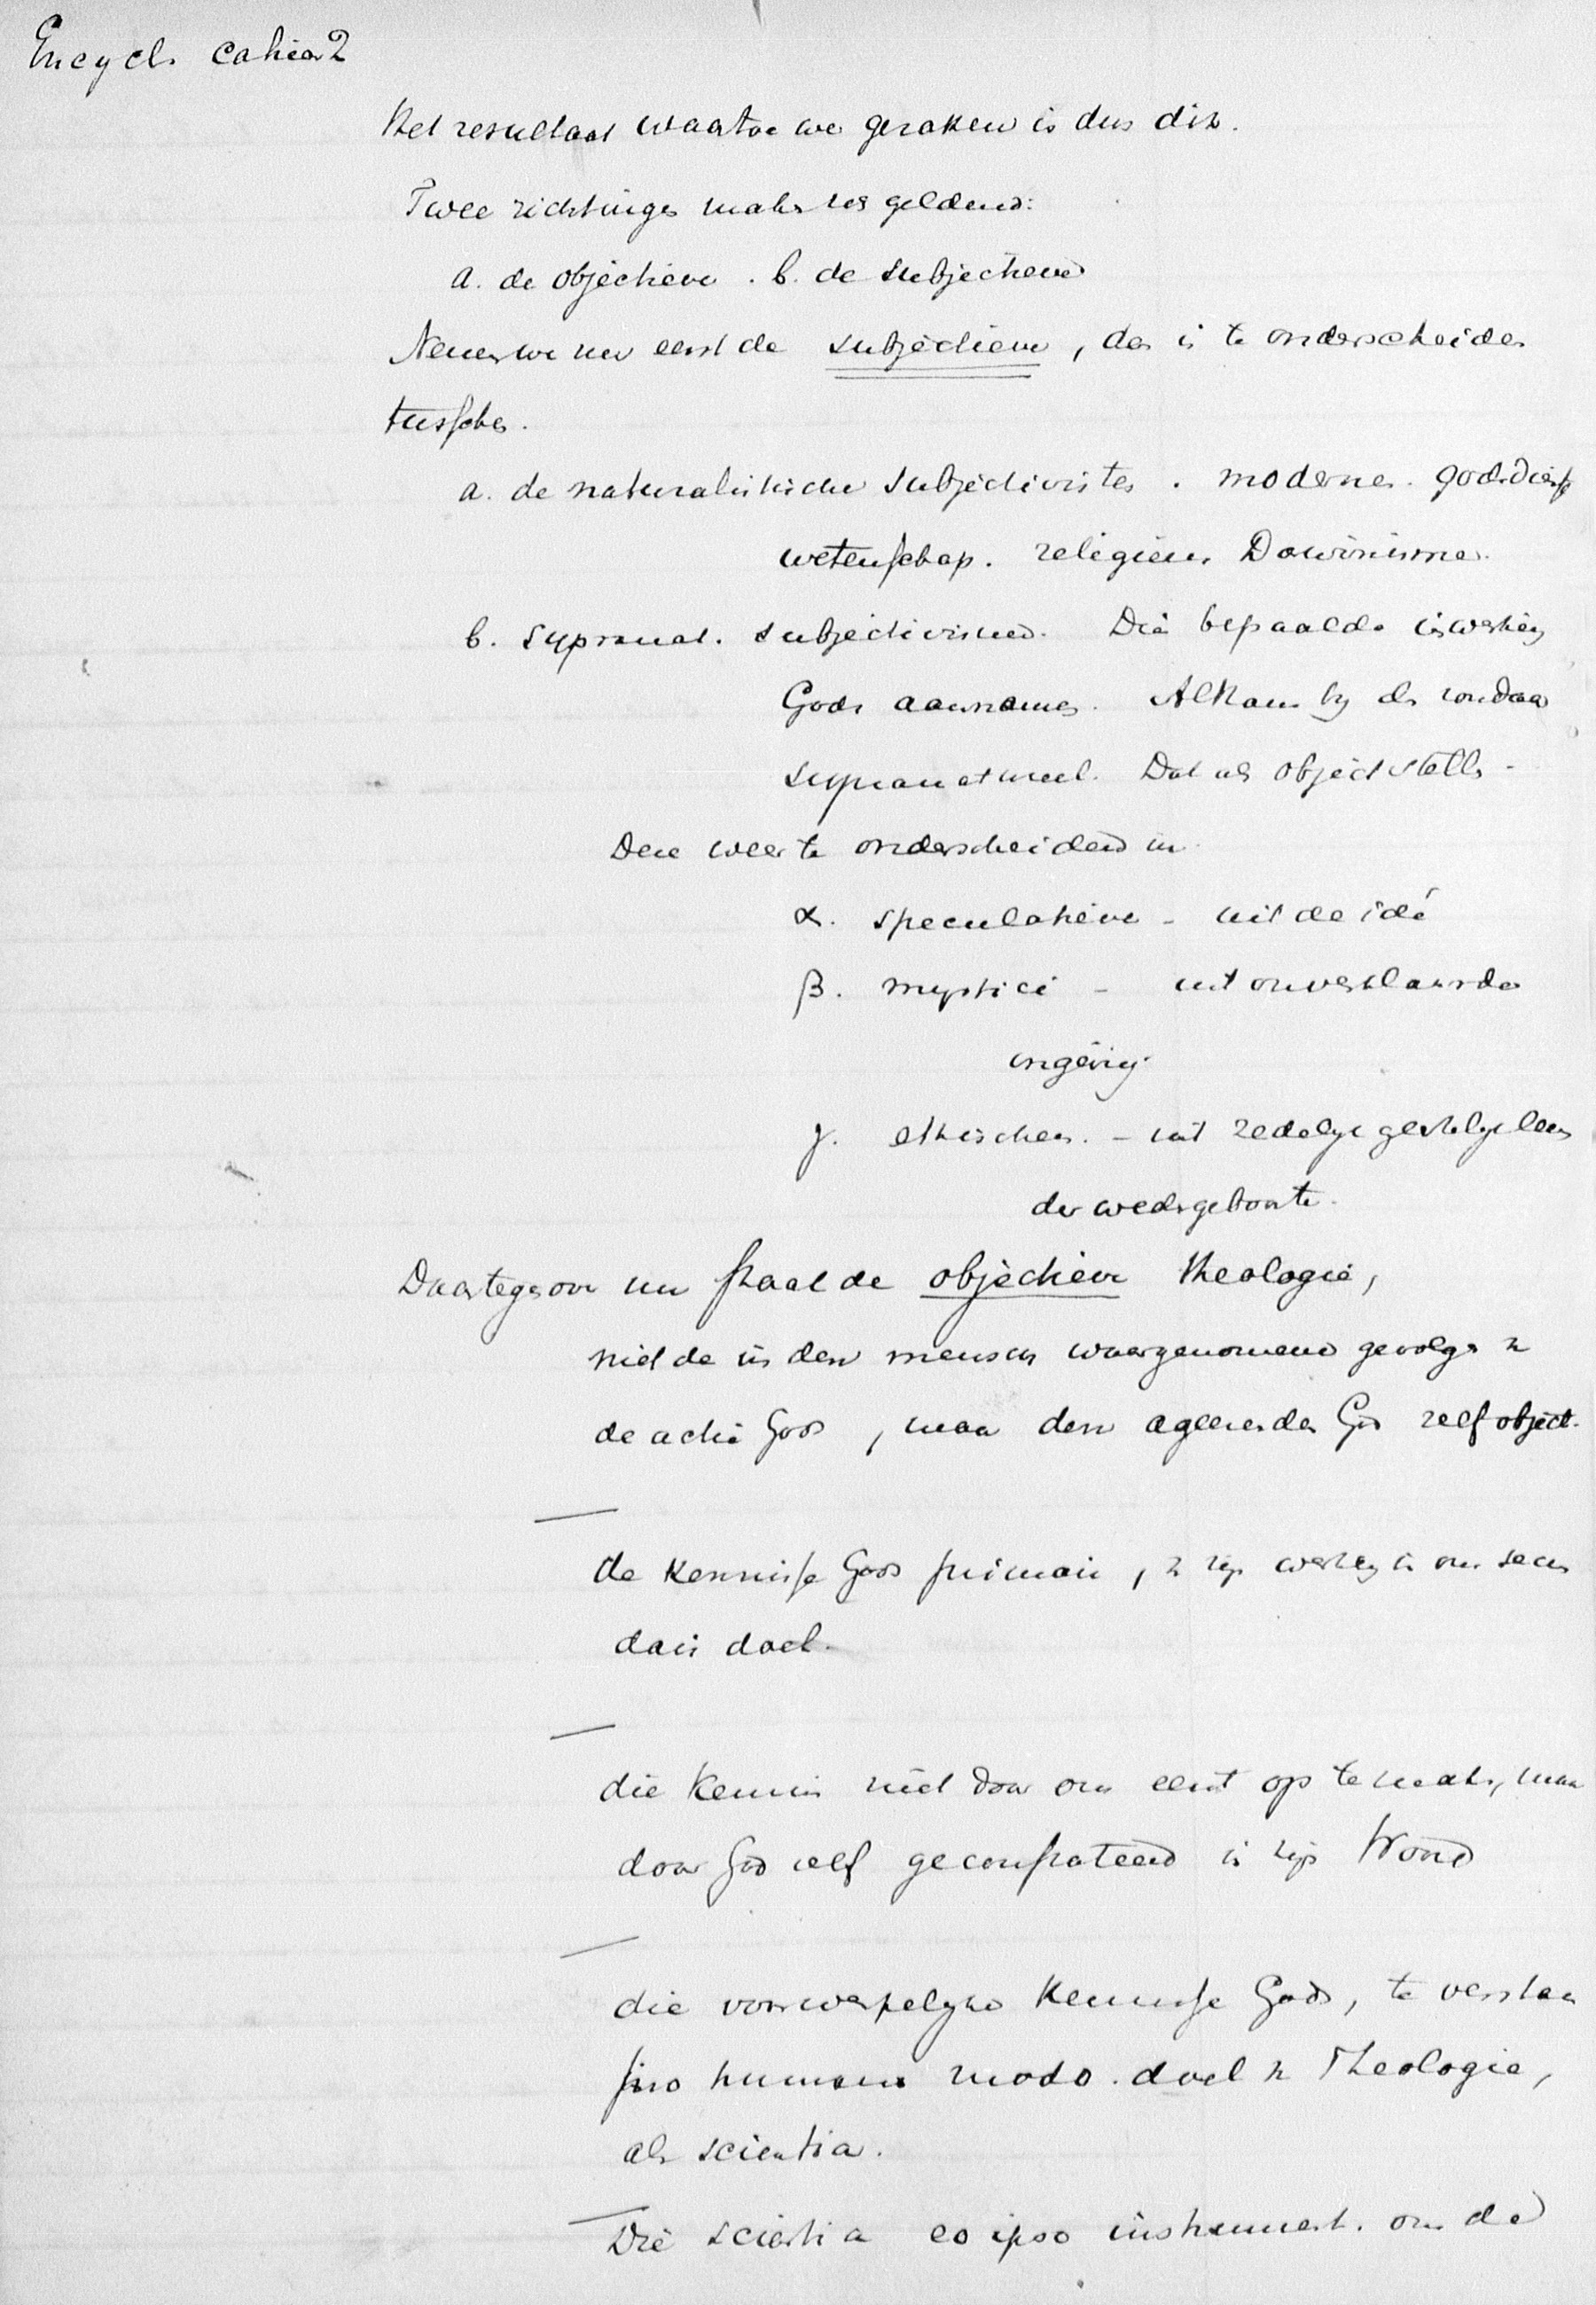 Encycl. Cahier 2
Het resultaat waartoe we geraken is dus dit.
Twee richtingen maken zich geldend:
a. de objectieve . b. de subjectieve
Nemen we nu eerst de subjectieve, dan is te onderscheiden
tusschen.
a. de naturalistische subjectivisten . moderne . godsdienst
wetenschap . religieus Darwinisme.
b. supranat. subjectivisme. Die bepaalde inwerking
Gods aannemen. Althans bij de zondaar
supranatureel. Dat als object stellen -
Deze weer te onderscheiden in
α. speculatieve - uit de idé
β. mystici - uit onverklaarde
ingeving.
γ. ethischen. - uit zedelijk geestelijk leven
der wedergeboorte.
Daartegenover nu staat de objectieve theologie,
niet de in den mensch waargenomene gevolgen v
de actie Gods, maar den ageerenden God zelf object.
de kennisse Gods primair, en zijn werking in ons secun
dair doel.
die kennis niet door ons eerst op te maken, maar
door God zelf geconstateerd in zijn Woord
die voorwerpelijke kennisse Gods, te verstaan
pro humano modo. doel v Theologie,
als scientia.
Die scientia eo ipso instrument. om de